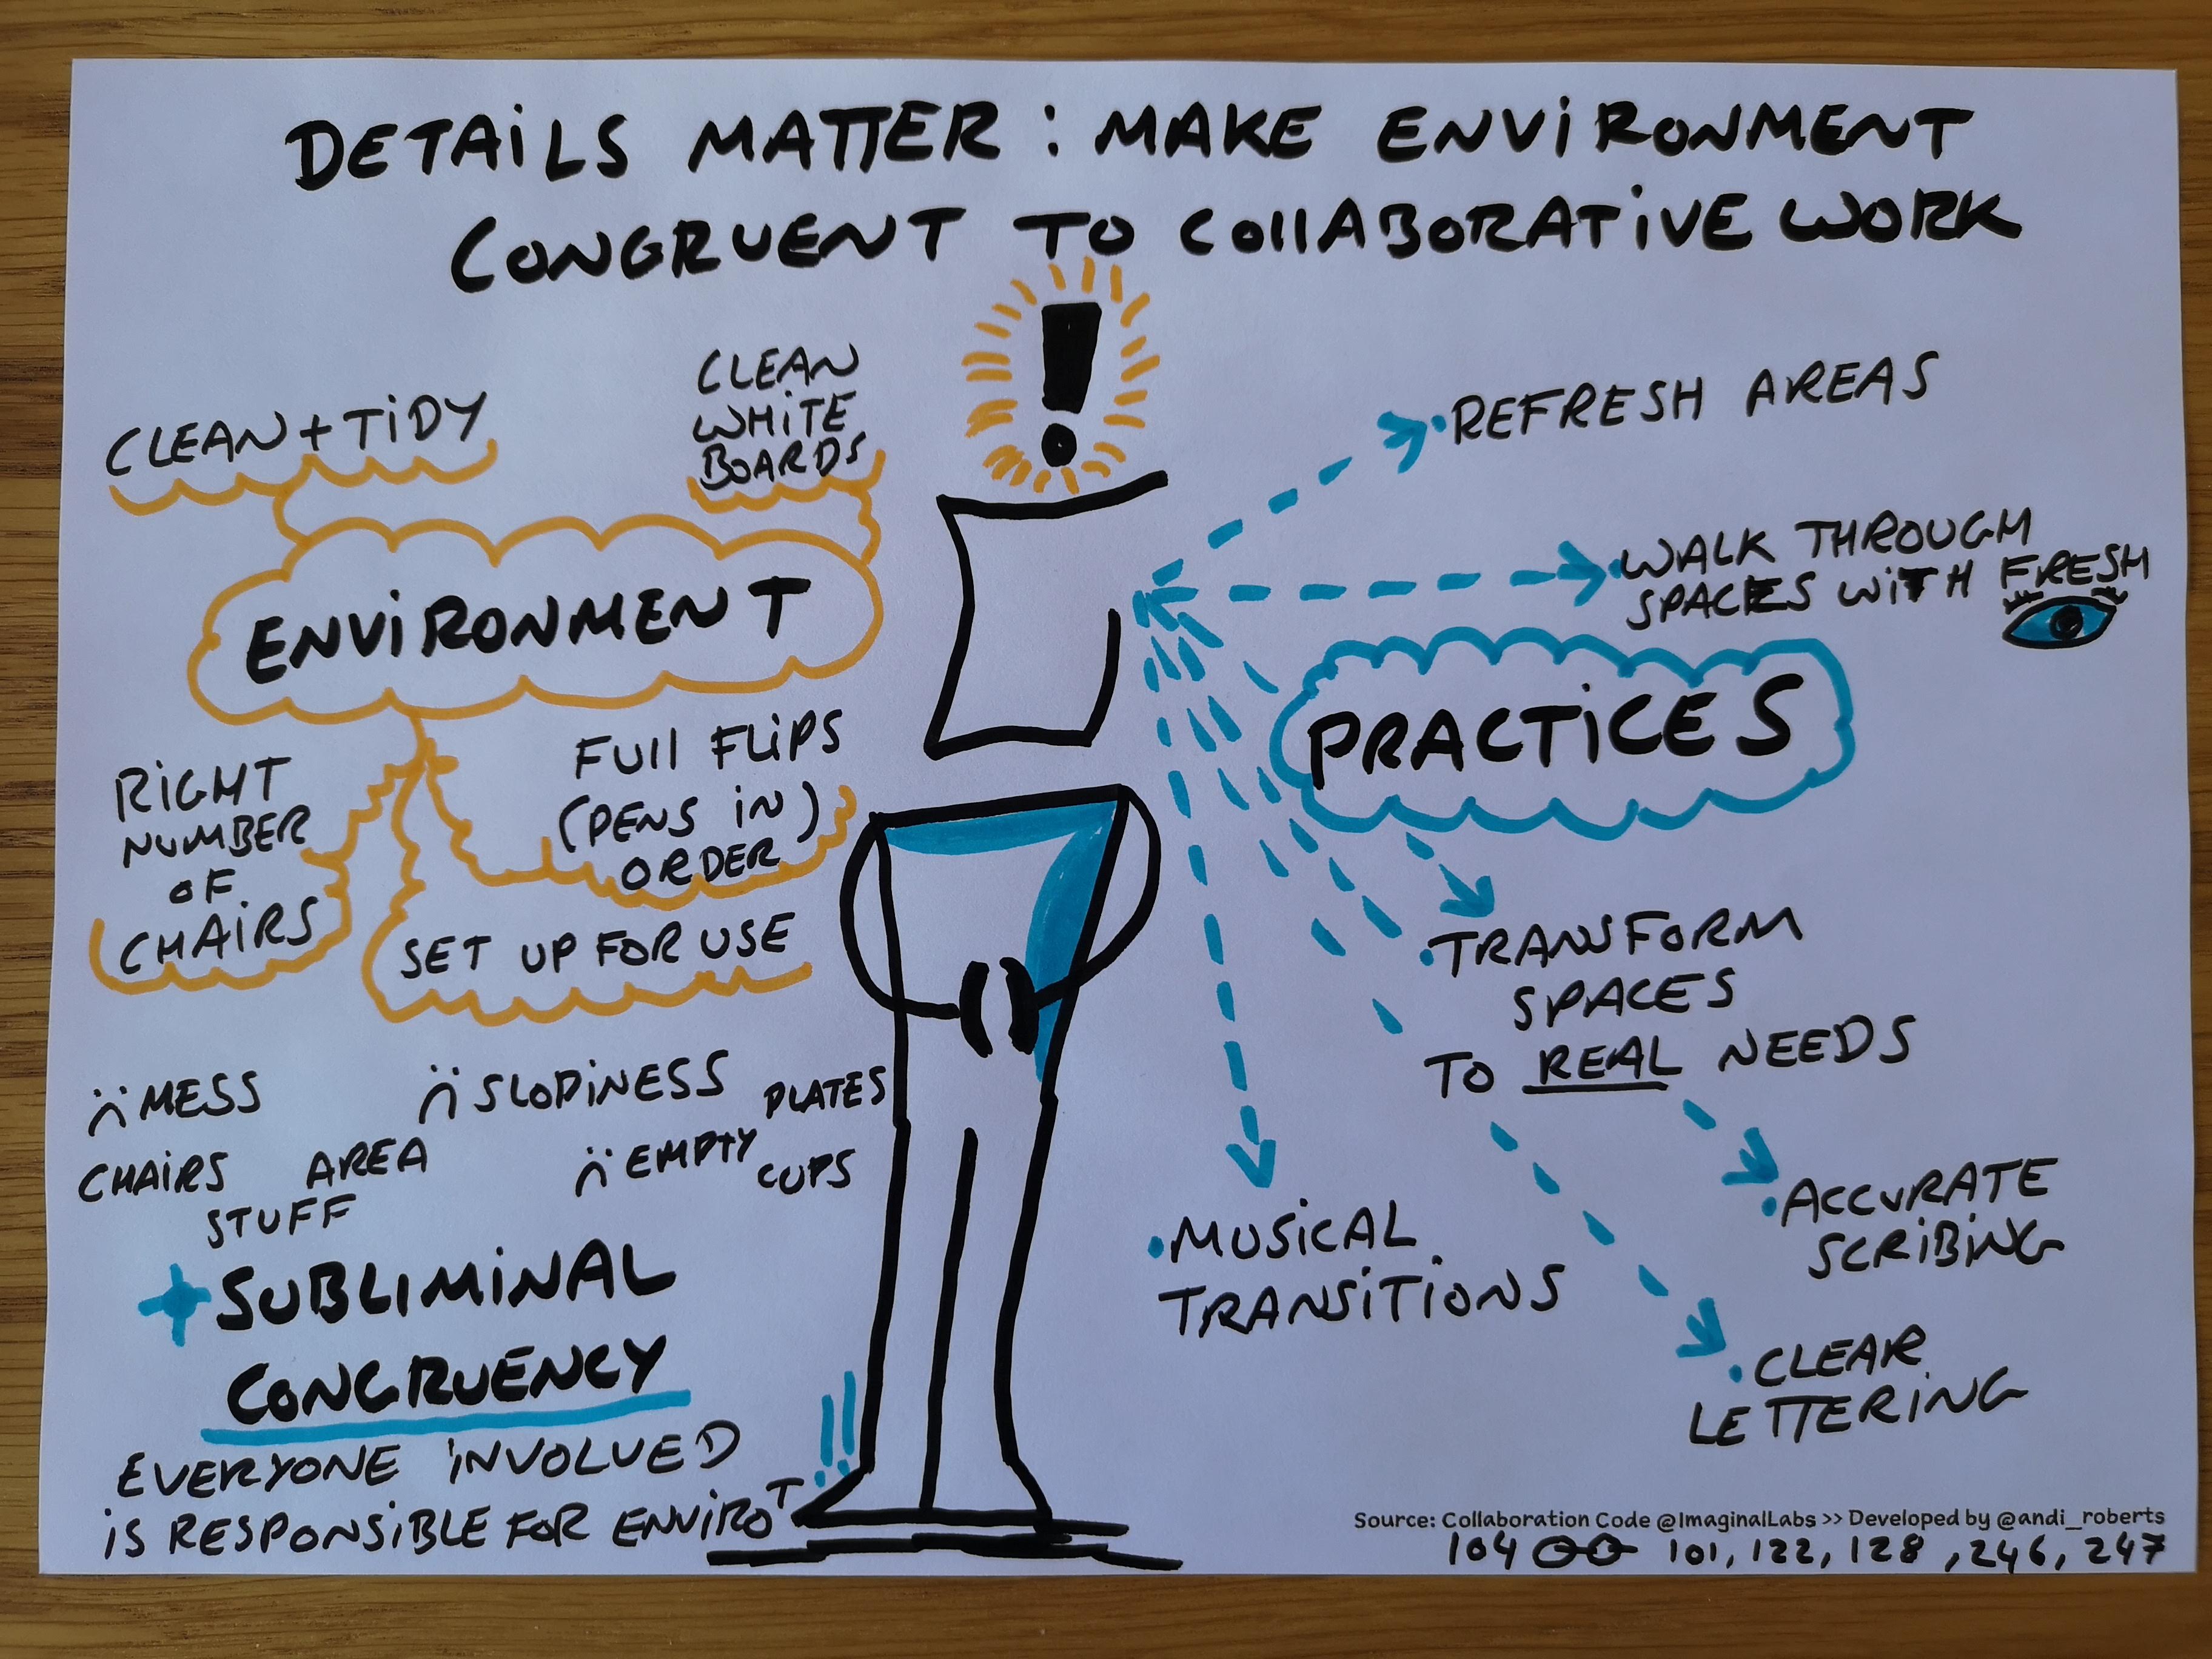 DETAILS MATTER : MAKE ENVIRONMENT
CONGRUENT TO COLLABORATIVE WORK
!
CLEAN + TIDY
CLEAN
WHITE
BOARDS
ENVIRONMENT
RIGHT
NUMBER
OF
CHAIRS
FULL FLIPS
(PENS IN)
ORDER
SET UP FOR USE
MESS
CHAIRS AREA
STUFF
SLOPINESS
EMPTY
PLATES
CUPS
SUBLIMINAL
CONGRUENCY
EVERYONE INVOLVED
IS RESPONSIBLE FOR ENVIROT
!!
• REFRESH AREAS
• WALK THROUGH
SPACES WITH FRESH
PRACTICES
• TRANSFORM
SPACES
TO REAL NEEDS
• ACCURATE
SCRIBING
• MUSICAL
TRANSITIONS
• CLEAR
LETTERING
Source: Collaboration Code @ImaginalLabs >> Developed by @andi_roberts
104 101, 122, 128, 246, 247